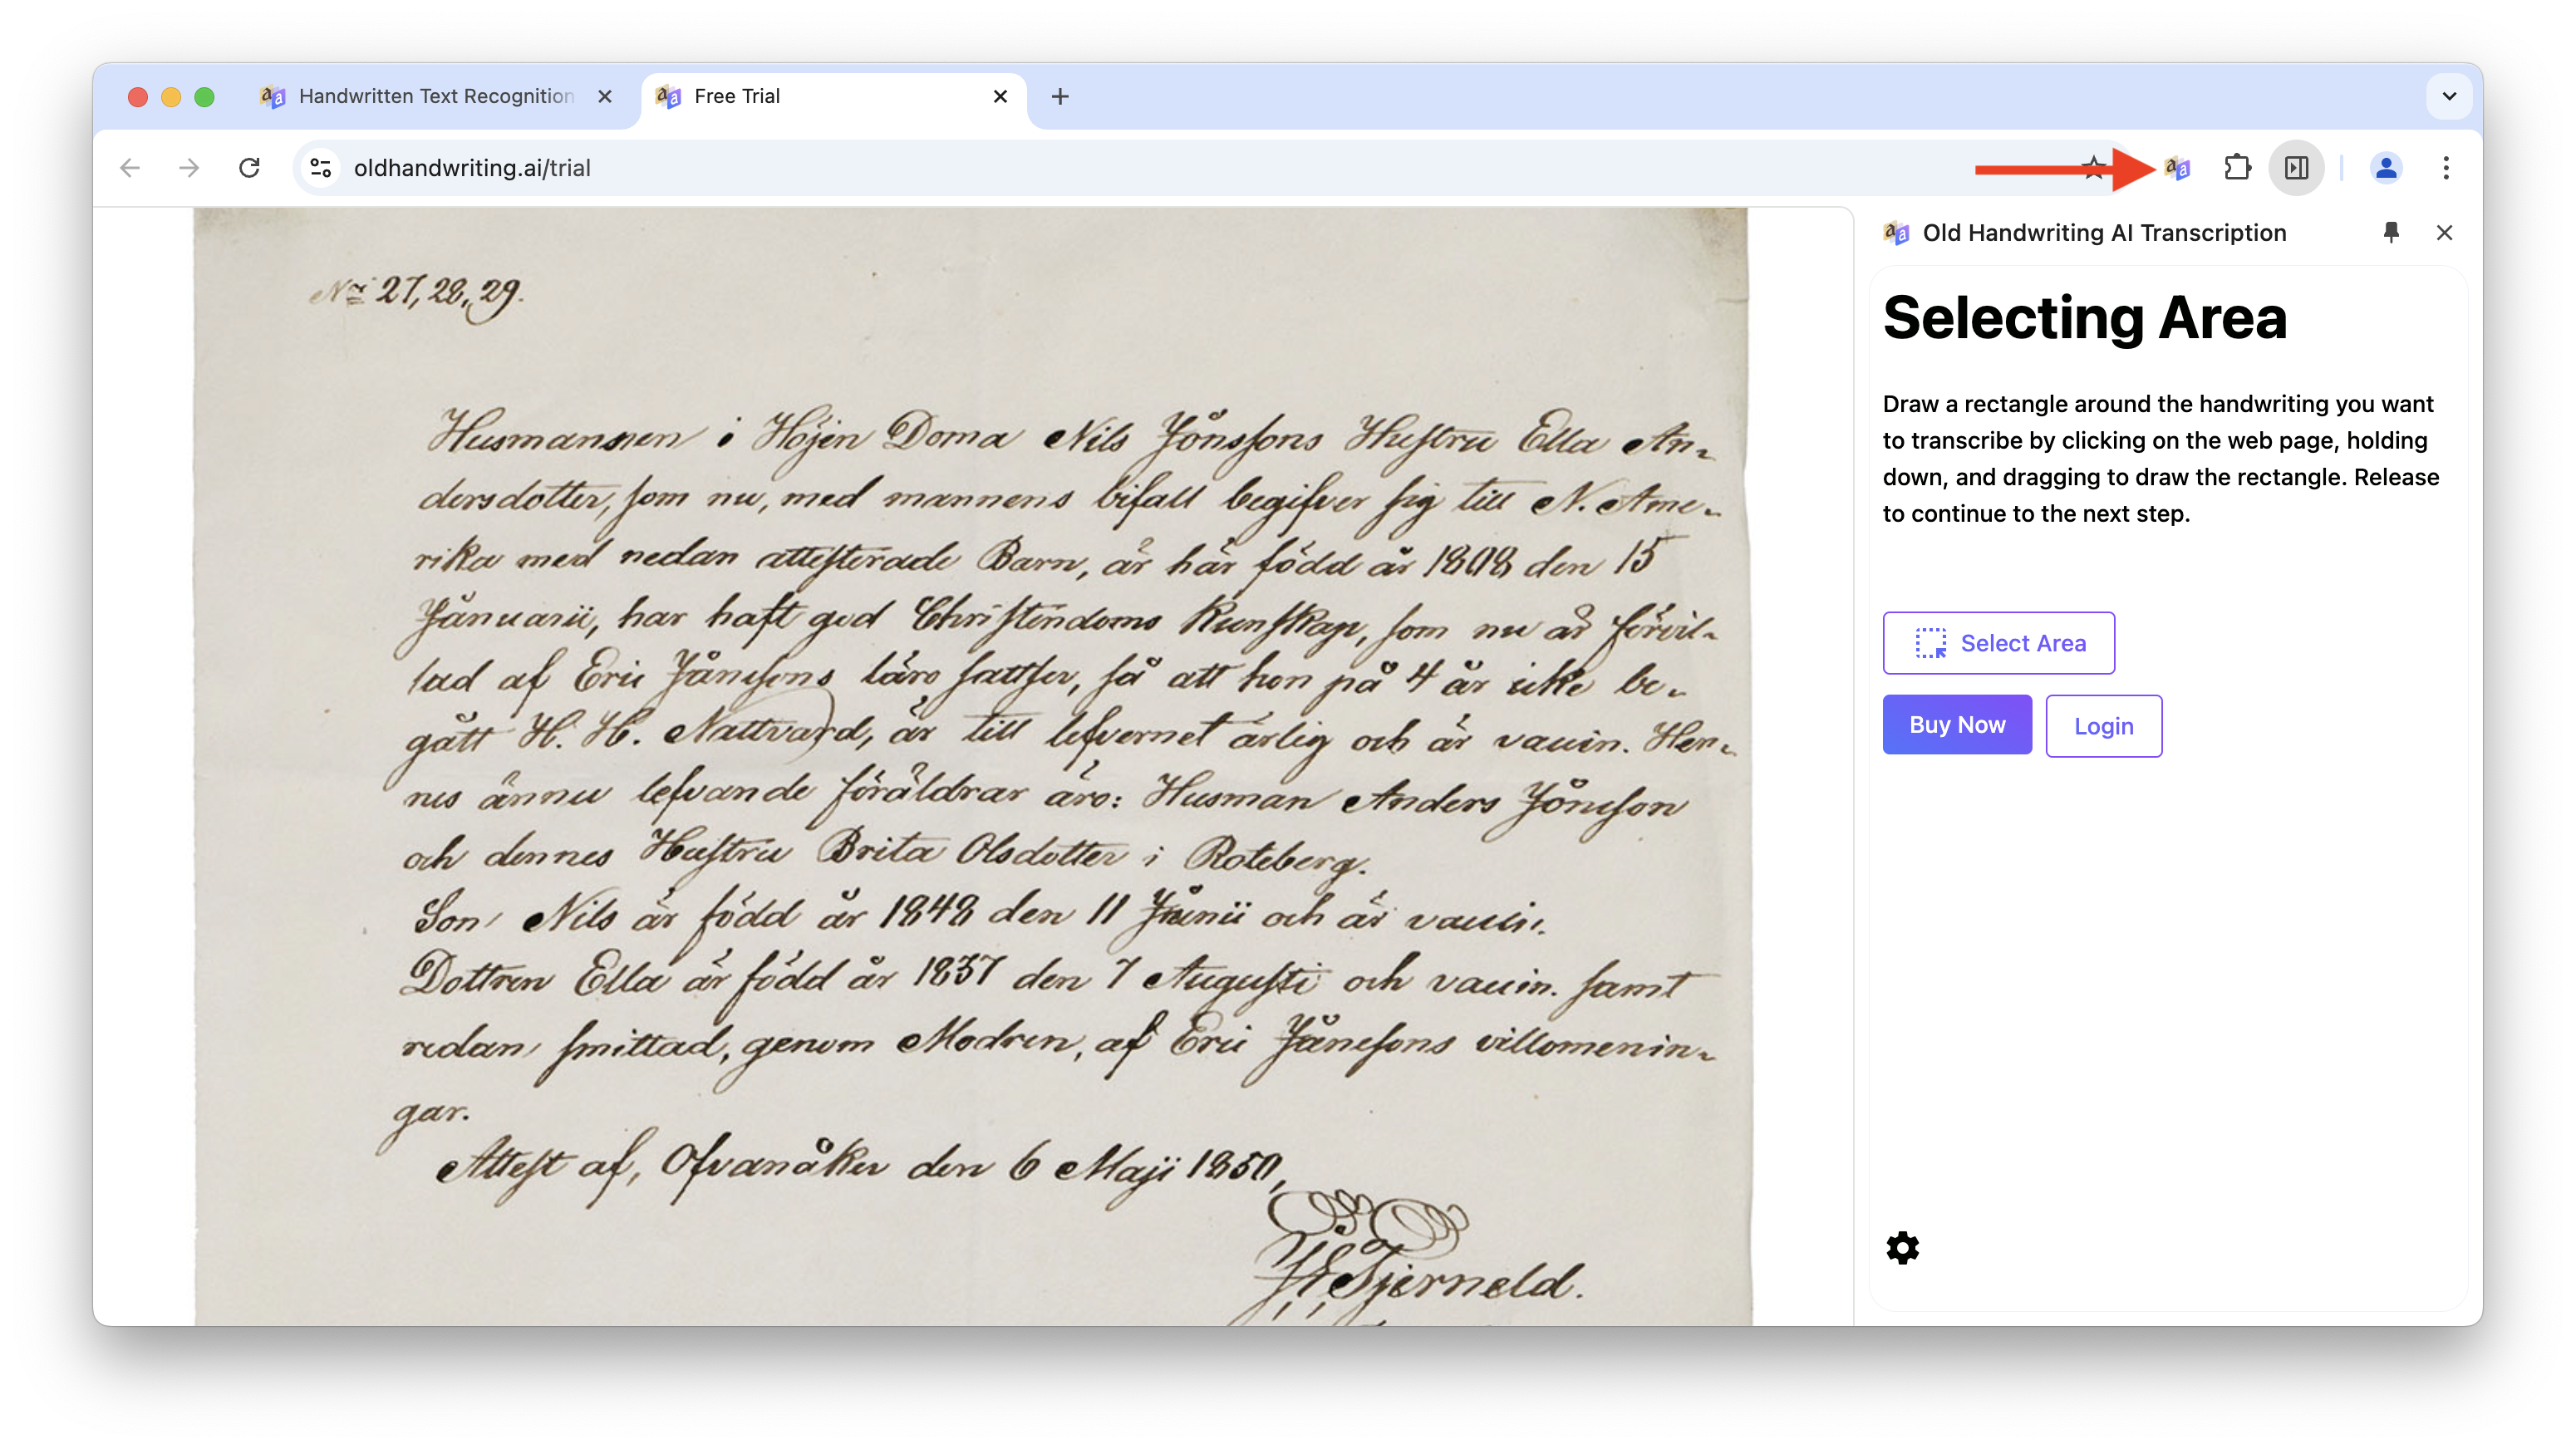 Handwritten Text Recognition
Free Trial
oldhandwriting.ai/trial
Nris 27, 28, 29.
Husmannen i Höjen Doma Nils Jönssons Hustru Ella An-
dersdotter, som nu, med mannens bifall begifver sig till N. Ame-
rika med nedan attesterade Barn, är här född år 1808 den 15
Januarii, har haft god Christendoms Kunskap, som nu är förvil-
lad af Eric Jansons läro satser, så att hon på 4 år icke be-
gått H. H. Nattvard, är till lefvernet ärlig och är vaccin. Hen-
nes ännu lefvande föräldrar äro: Husman Anders Jönsson
och dennes Hustru Brita Olsdotter i Roteberg.
Son Nils är född år 1848 den 11 Junii och är vaccin.
Dottren Ella är född år 1837 den 7 Augusti och vaccin. samt
redan smittad, genom Modren, af Eric Jansons villomenin-
gar.
Attest af, Ofvanåker den 6 Maji 1850,
Tjerneld.
Old Handwriting AI Transcription
Selecting Area
Draw a rectangle around the handwriting you want
to transcribe by clicking on the web page, holding
down, and dragging to draw the rectangle. Release
to continue to the next step.
Select Area
Buy Now
Login